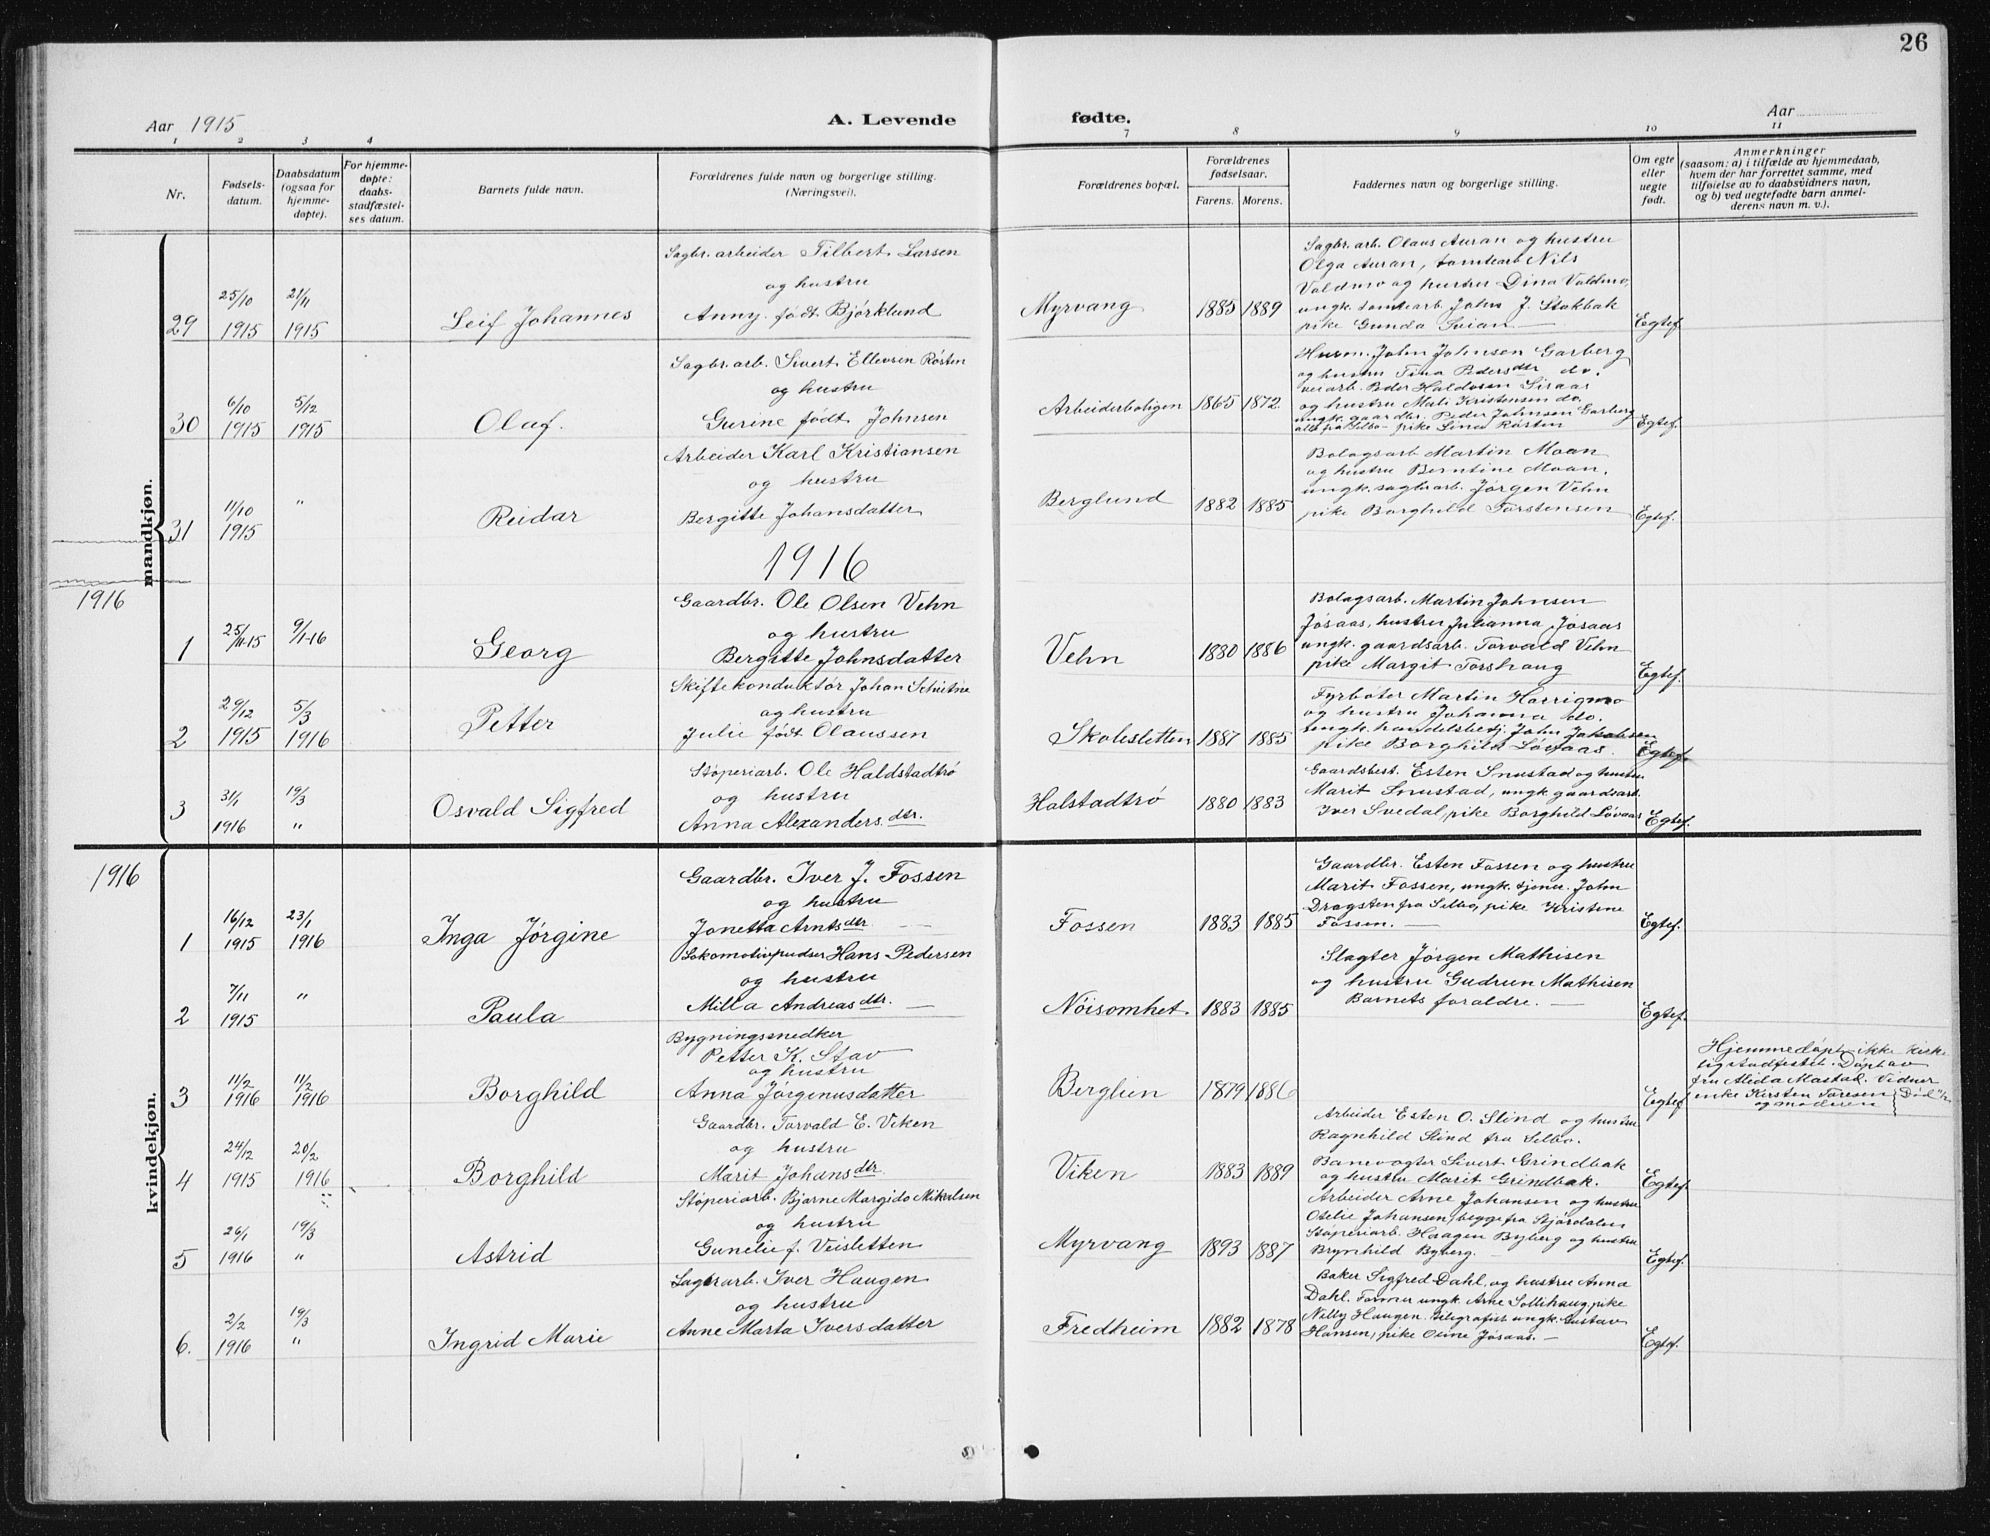 26
Aar 1915
A. Levende fødte.
Aar
1 2 3 4 7 8 9 10 11
Nr.
Fødsels-
datum.
Daabsdatum
(ogsaa for
hjemme-
døpte).
For hjemme-
døpte:
daabs-
stadfæstel-
ses datum.
Barnets fulde navn.
Forældrenes fulde navn og borgerlige stilling.
(Næringsvei).
Forældrenes bopæl.
Forældrenes
fødselsaar.
Farens. Morens.
Faddernes navn og borgerlige stilling.
Om egte
eller
uegte
født.
Anmerkninger
(saasom: a) i tilfælde av hjemmedaab,
hvem der har forrettet samme, med
tilføielse av to daabsvidners navn,
og b) ved uegtefødte barn anmel-
derens navn m. v.).
mandkjøn.
29
25/10
1915
21/11
1915
Leif Johannes
Sagbr. arbeider Tilbert Larsen
og hustru
Anny født Bjørklund
Myrvang
1885 1889
Sagbr. arb. Olaus Auran og hustru
Olga Auran, tomtearb Nils
Valdmo og hustru Dina Valdmo,
ungk. tomtearb. John J. Stokbak
pike Gunda Svian
Egtef.
30
6/10
1915
5/12
1915
Olaf.
Sagbr. arb. Sivert Ellevsen Røsten
og hustru
Gurine født Johnsen
Arbeiderboligen
1865 1872.
Husm. John Johnsen Garberg
og hustru Tina Pedersdtr do.
veiarb. Peder Haldosen Siraas
og hustru Mali Kristensen do,
ungk. gaardbr. Peder Johnsen Garberg
alle fra Selbo - pike Lina Røsten
Egtef.
31
11/10
1915
"
Reidar
Arbeider Karl Kristiansen
og hustru
Bergitte Johansdatter
Berglund
1882 1885
Bolagsarb Martin Moan
og hustru Berntine Moan,
ungk. sagbrarb. Jørgen Vehn
pike Borghild Torstensen
Egtef.
1916
1916
1
25/11-15
9/1-16
Georg
Gaardbr. Ole Olsen Vehn
og hustru
Bergitte Johnsdatter
Vehn
1880 1886
Bolagsarb. Martin Johnsen
Jøsaas, hustru Julianna Jøsaas
ungk. gaardsarb. Torvald Vehn
pike Margit Forshaug
Egtef.
2
29/12
1915
5/3
1916
Petter
Skiftekonduktør Johan
og hustru
Julie født Olaussen
Skolesletten
1887 1885
Fyrbøter Martin
og hustru Johanna do.
ungk. handelsbestj. John Jakobsen
pike Borghild Løvaas.
Egtef.
3
31/1
1916
19/3
"
Osvald Sigfred
Støperiarb. Ole Haldstadtrø
og hustru
Anna Alexandersdtr.
Halstadtrø
1880 1883
Gaardsbest. Esten Snustad og hustru
Marit Snustad, ungk gaardsarb.
Iver Svedal, pike Borghild Løvaas
Egtef.
1916
kvindekjøn.
1
16/12
1915
23/1
1916
Inga Jørgine
Gaardbr. Iver J. Fossen
og hustru
Jonetta Arntsdtr.
Fossen
1883 1885
Gaardbr. Esten Fossen og hustru
Marit Fossen, ungk. tjener John
Dragsten fra Selbo, pike Kristine
Fossen.
Egtef.
2
7/11
1915
"
Paula
Lokomotivpudser Hans Pedersen
og hustru
Milla Andreasdtr.
Nöisomhet.
1883 1885
Slagter Jørgen Mathisen
og hustru Gudrun Mathisen
Barnets foraldre.
Egtef.
3
11/2
1916
11/2
1916
Borghild
Bygningssnedker
Petter K. Stav
og hustru
Anna Jørgenusdatter
Berglien
1879 1886
Egtef
Hjemmedøpt ikke kirke
ligstadfestet. Døpt av
fru Alida Mastad. Vidner
enke Kirsten Toresen
og moderen
4
24/12
1915
20/2
1916
Borghild
Gaardbr. Torvald E. Viken
og hustru
Marit Johansdtr.
Viken
1883 1889
Arbeider Esten O. Slind og hustru
Ragnhild Slind fra Selbo.
Banevogter Sivert Grindbak
og hustru Marit Grindbak.
Egtef.
5
26/1
1916
19/3
"
Astrid
Støperiarb. Bjarne Margido Mikalsen
og hustru
Gunelie f. Veisletten
Myrvang
1893 1887
Arbeider Arne Johansen og hustru
Otelie Johansen, begge fra Stjørdalen
Støperiarb. Haagen Byberg og hustru
Brynhild Byberg.
Egtef.
6.
2/2
1916
19/3
"
Ingrid Marie
Sagbrarb. Iver Haugen
og hustru
Anne Marta Iversdatter
Fredheim
1882 1878
Baker Sigfred Dahl, og hustru Anna
Dahl. Former ungk. Arne Sollihaug, pike
Nilly Haugen. Telegrafist ungk. Gustav
Hansen, pike Oline Jøsaas.
Egtef.